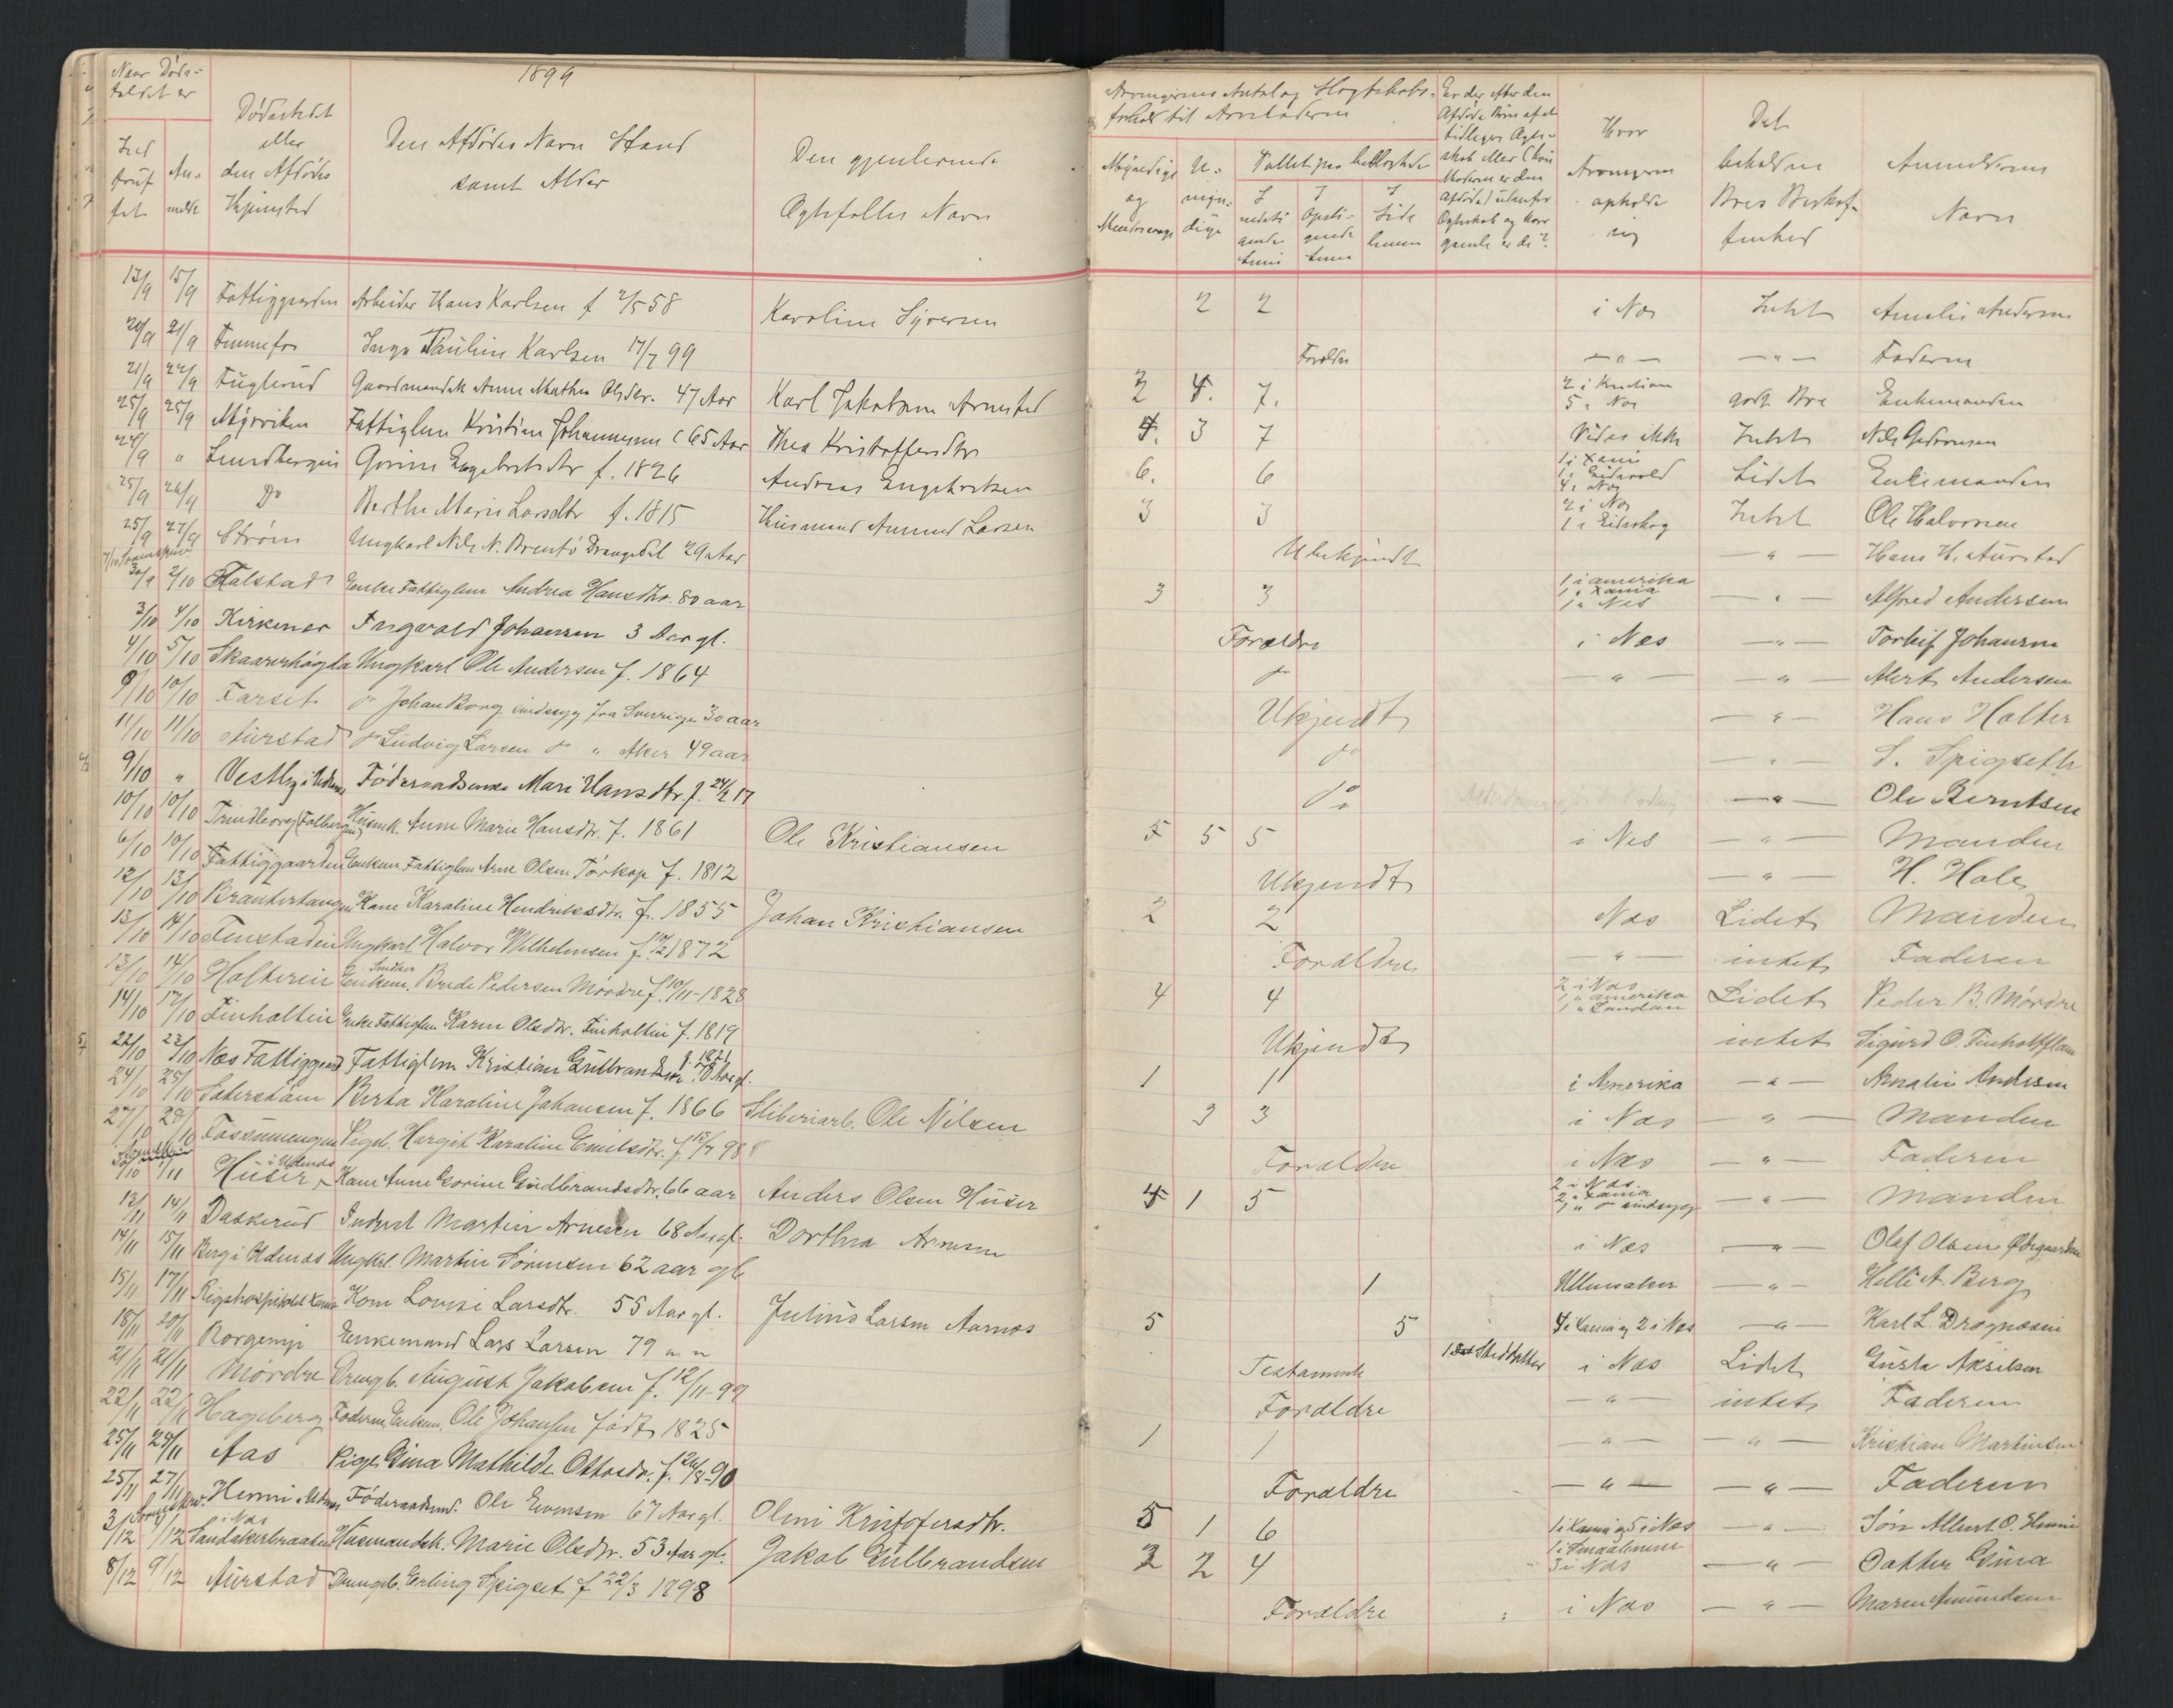 1899
Naar Døds-
faldet er
Ind
truf
fet
An-
meldt
Dødsstedet
eller
den Afdødes
Hjemsted
Den Afdødes Navn Stand
samt Alder
Den gjenlevende
Ægtefælles Navn
Arvingernes Antal og Slægtskabs-
forhold til Arveladeren
Myndige
og
Umyn-
dige
I
nedsti
gende
Linie
I
Opsti-
gende
Linie
I
Side
linien
Er der efter den
Afdøde Børn af et
tidligere Ægte-
skab eller (hvis
Moderen er den
Afdøde) udenfor
Ægteskab og hvor
gamle er de?
Hvor
Arvingerne
opholde
sig
Det
beholdne
Boes Beskaf-
fenhed
Anmelderens
Navn
13/9 15/9 Fattiggaarden Arbeider Hans Karlsen f 2/5 58 Karoline Syversen 2 2 i Nes Intet Amalie Andersen
20/9 21/9 Funnefos Inga Pauline Karlsen 17/7 99 Forældre — " — — " — Faderen
21/9 22/9 Fuglerud Gaardmandsk Anne Mathea Olsdtr. 47 Aar Karl Jakobsen Arnestad 3 4. 7. 2 i Kristiania 5 i Nes godt Bo Enkemanden
25/9 25/9 Myrviken Fattiglem Kristian Johannesen c 65 Aar Thea Kristoffersdtr 4. 3 7 Vides ikke Intet Nils Gedeonsen
24/9 " Lundbergeie Gorine Engebretsdtr f. 1826 Andreas Engebretsen 6. 6 1 i Xania 1 i Eidsvold 4 i Nes Lidet Enkemanden
25/9 26/9 Do Berthe Marie Larsdtr f. 1815 Husmand Amund Larsen 3 3 2 i Nes 1 i Eidskog Intet Ole Halvorsen
25/9 27/9 Strøm Ungkarl Nils N. Brentø Drangedal 29 Aar Ubekjendt — " — Hans H. Aurstad
30/9 2/10 Halstad Enke Fattiglem Andrea Hansdtr. 80 aar 3 3 1 i amerika 1 " Xania 1 " Nes — " — Alfred Andersen
3/10 4/10 Kirkenær Ingvald Johansen 3 Aar gl. Forældre i Næs — " — Torleif Johansen
4/10 5/10 Skaarerhøgda Ungkarl Ole Andersen f. 1864 do — " — — " — Albert Andersen
9/10 10/10 Farset do Johan Borg sindssyg fra Sverrige 30 aar Ukjendt — " — Hans Holter
11/10 11/10 Aurstad do Ludvig Larsen do " Aker 49 aar do — " — S. Spigseth
9/10 " Vestby i Udenes Føderaadsenke Mari Hansdtr. f. 24/2 17 do — " — Ole Berntsen
10/10 10/10 Husmk. Anne Marie Hansdtr. f. 1861 Ole Kristiansen 5 5 5 i Nes — " — Manden
6/10 10/10 Fattiggaarden Enkem. Fattiglem Arne Olsen Tørkop f. 1812 Ukjendt — " — H. Hole
12/10 13/10 Brauterhaugen Kone Karoline Hendriksdtr. f. 1855 Johan Kristiansen 2 2 Nes Lidet Manden
13/10 14/10 Finstadeie Ungkarl Halvor Wilhelmsen f. 1872 Forældre — " — intet Faderen
13/10 14/10 Holtereie Enkem. Smeder Brede Pedersen Mørdre f. 10/11-1828 4 4 2 i Nes 1 " amerika 1 " London Lidet Peder B. Mørdre
14/10 17/10 Finholteie Enke Fattiglem Karen Olsdtr. Finholteie f. 1819 Ukjendt intet Sigurd O. Finholt
22/10 23/10 Nes Fattiggaard Fattiglem Kristian Gulbrandsen f. 1821 78 Aar gl. 1 1 i Amerika — " — Amalie Andersen
24/10 25/10 Berta Karoline Johansen f. 1866 Sliberiarb. Ole Nilsen 3 3 i Nes — " — Manden
27/10 28/10 Fossumengen Pigeb. Margit Karoline Emilsdtr. f. 13/7 98 Forældre i Næs — " — Faderen
30/10 1/11 Huser i Udenes Kone Anne Gorine Gudbrandsdtr. 66 aar Anders Olsen Huser 4 1 5 2 i Nes 2 " Xania 1 " do sindssyg — " — Manden
12/11 14/11 Daskerud Inderst Martin Arnesen 68 Aar gl. Dorthea Arnesen i Næs — " — Olaf Olsen
14/11 15/11 Berg i Udenes Ungkrl. Martin Sørensen 62 aar gl. 1 Ullensaker — " — Helli A. Berg
15/11 17/11 Rigshospitalet Xania Kone Lovise Larsdtr. 55 Aar gl. Julius Larsen Aarnes 5 5 i Xania og 2 i Nes — " — Karl L. Dragnæseie
18/11 20/11 Borgenmo Enkemand Lars Larsen 79 " " Testamente 1 Steddatter i Næs Lidet Gusta Akselsen
21/11 21/11 Mørdre Drengb. August Jakobsen f. 12/11-99 Forældre — " — intet Faderen
22/11 22/11 Hageberg Føderm. Enkem. Ole Johansen født 1825 1 1 — " — — " — Kristian Martinsen
25/11 25/11 Aas Pige Gina Mathilde Ottosdtr. f. 26/8-90 Forældre — " — — " — Faderen
25/11 27/11 Henni i Udenes Føderaadsmd. Ole Evensen 67 Aar gl. Olini Kristofersdtr. 5 1 6 1 i Xania og 5 i Nes — " — Søn Albert O. Henni
3/12 /12 Sandakerbraaten i Nes Husmandsk. Marie Olsdtr. 53 Aar gl. Jakob Gulbrandsen 2 2 4 3 i Nes — " — Datter Gina
8/12 9/12 Aurstad Drengeb. Erling Spigset f 22/3 1898 Forældre i Næs — " — Maren Amundsen